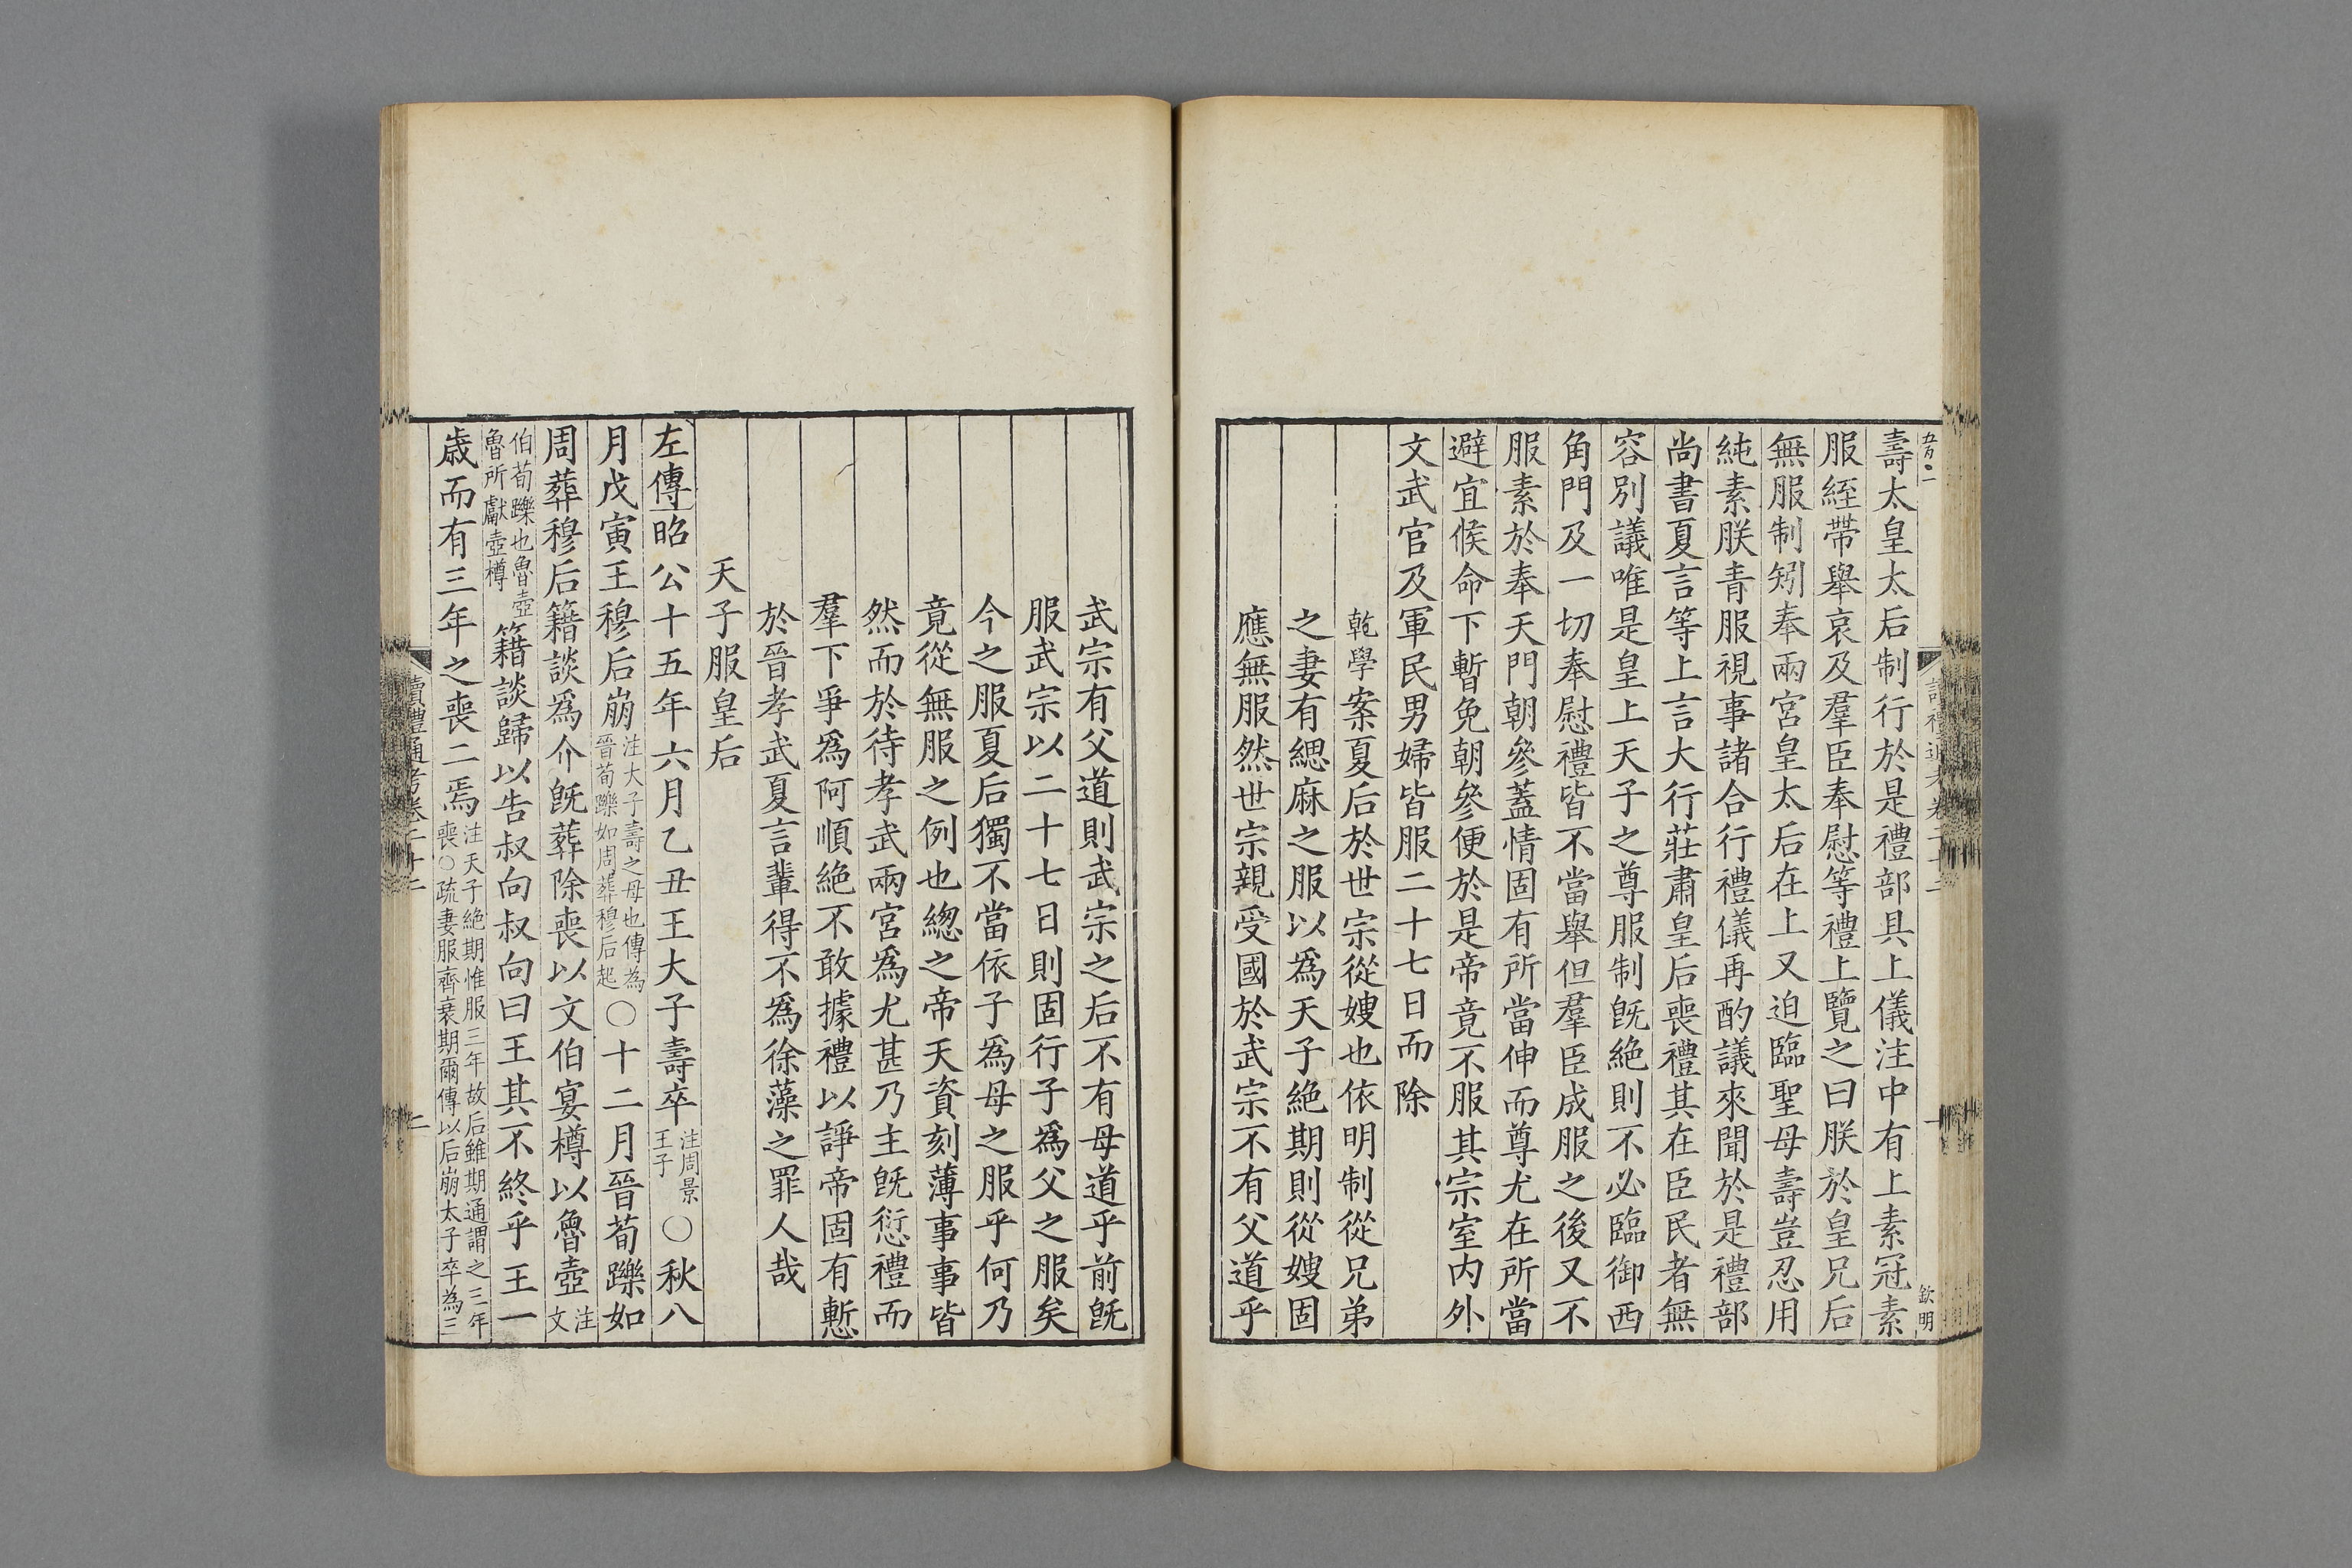 壽太皇太后制行於是禮部具上儀注中有上素冠素
服絰帶舉哀及羣臣奉慰等禮上覽之曰朕於皇兄后
無服制矧奉兩宮皇太后在上又迫臨聖母壽豈忍用
純素朕青服視事諸合行禮儀再酌議來聞於是禮部
尚書夏言等上言大行莊肅皇后喪禮其在臣民者無
容別議唯是皇上天子之尊服制旣絶則不必臨御西
角門及一切奉慰禮皆不當舉但羣臣成服之後又不
服素於奉天門朝參蓋情固有所當伸而尊尤在所當
避宜候命下暫免朝參便於是帝竟不服其宗室內外
文武官及軍民男婦皆服二十七日而除
乾學案夏后於世宗從嫂也依明制從兄弟
之妻有緦麻之服以爲天子絶期則從嫂固
應無服然世宗親受國於武宗不有父道乎
欽明
武宗有父道則武宗之后不有母道乎前旣
服武宗以二十七日則固行子爲父之服矣
今之服夏后獨不當依子爲母之服乎何乃
竟從無服之例也緫之帝天資刻薄事事皆
然而於待孝武兩宮爲尤甚乃主旣愆禮而
羣下爭爲阿順絶不敢據禮以諍帝固有慙
於晉孝武夏言輩得不爲徐藻之罪人哉
天子服皇后
左傳昭公十五年六月乙丑王大子壽卒注周景王子〇秋八
月戊寅王穆后崩注大子壽之母也傳為晉荀躒如周葬穆后起〇十二月晉荀躒如
周葬穆后籍談爲介旣葬除喪以文伯宴樽以魯壺注文
伯荀躒也魯壺魯所獻壺樽籍談歸以告叔向叔向曰王其不終乎王一
歲而有三年之喪二焉注天子絶期惟服三年故后雖期通謂之三年喪〇疏妻服齊衰期爾傳以后崩太子卒為三
讀禮通考卷二十二
二